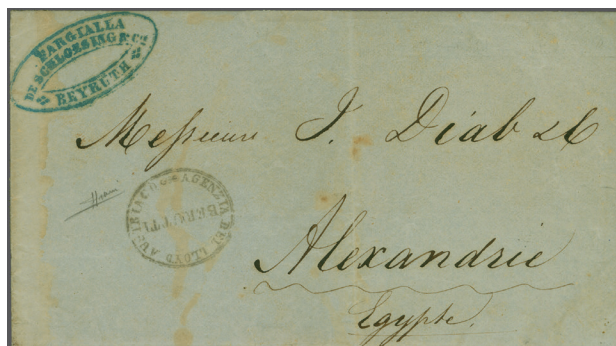 VARGIALLA
DE SCHLOESING & Cº
BEYRUTH
Messieurs J. Diab & C
AGENZIA DEL LLOYD AUSTRIACO
BEROTTI
Alexandrie
Egypte.